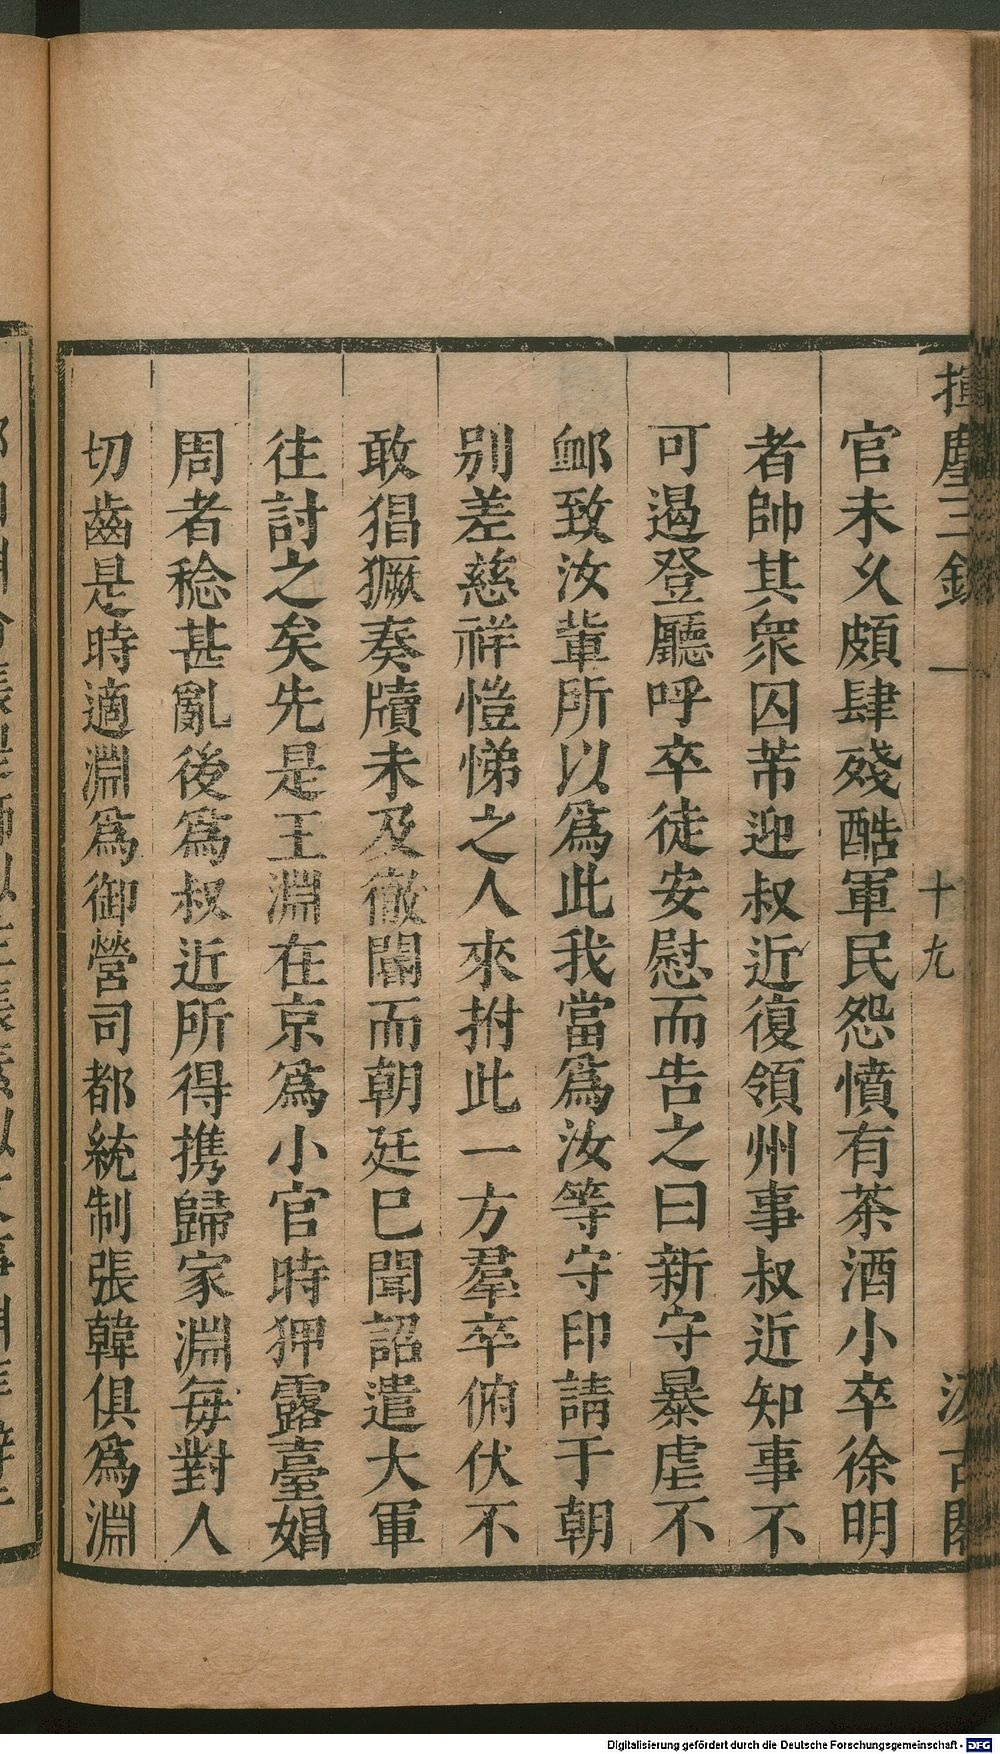 揮麈三錄 一 十九 汲古閣
官未久頗肆殘酷軍民怨憤有茶酒小卒徐明
者帥其衆囚芾迎叔近復領州事叔近知事不
可遏登廳呼卒徒安慰而告之曰新守暴虐不
䘏致汝輩所以爲此我當爲汝等守印請于朝
別差慈祥愷悌之人來拊此一方羣卒俯伏不
敢猖獗奏牘未及徹闈而朝廷已聞詔遣大軍
往討之矣先是王淵在京爲小官時狎露臺娼
周者稔甚亂後爲叔近所得携歸家淵每對人
切齒是時適淵爲御營司都統制張韓俱爲淵
Digitalisierung gefördert durch die Deutsche Forschungsgemeinschaft - DFG